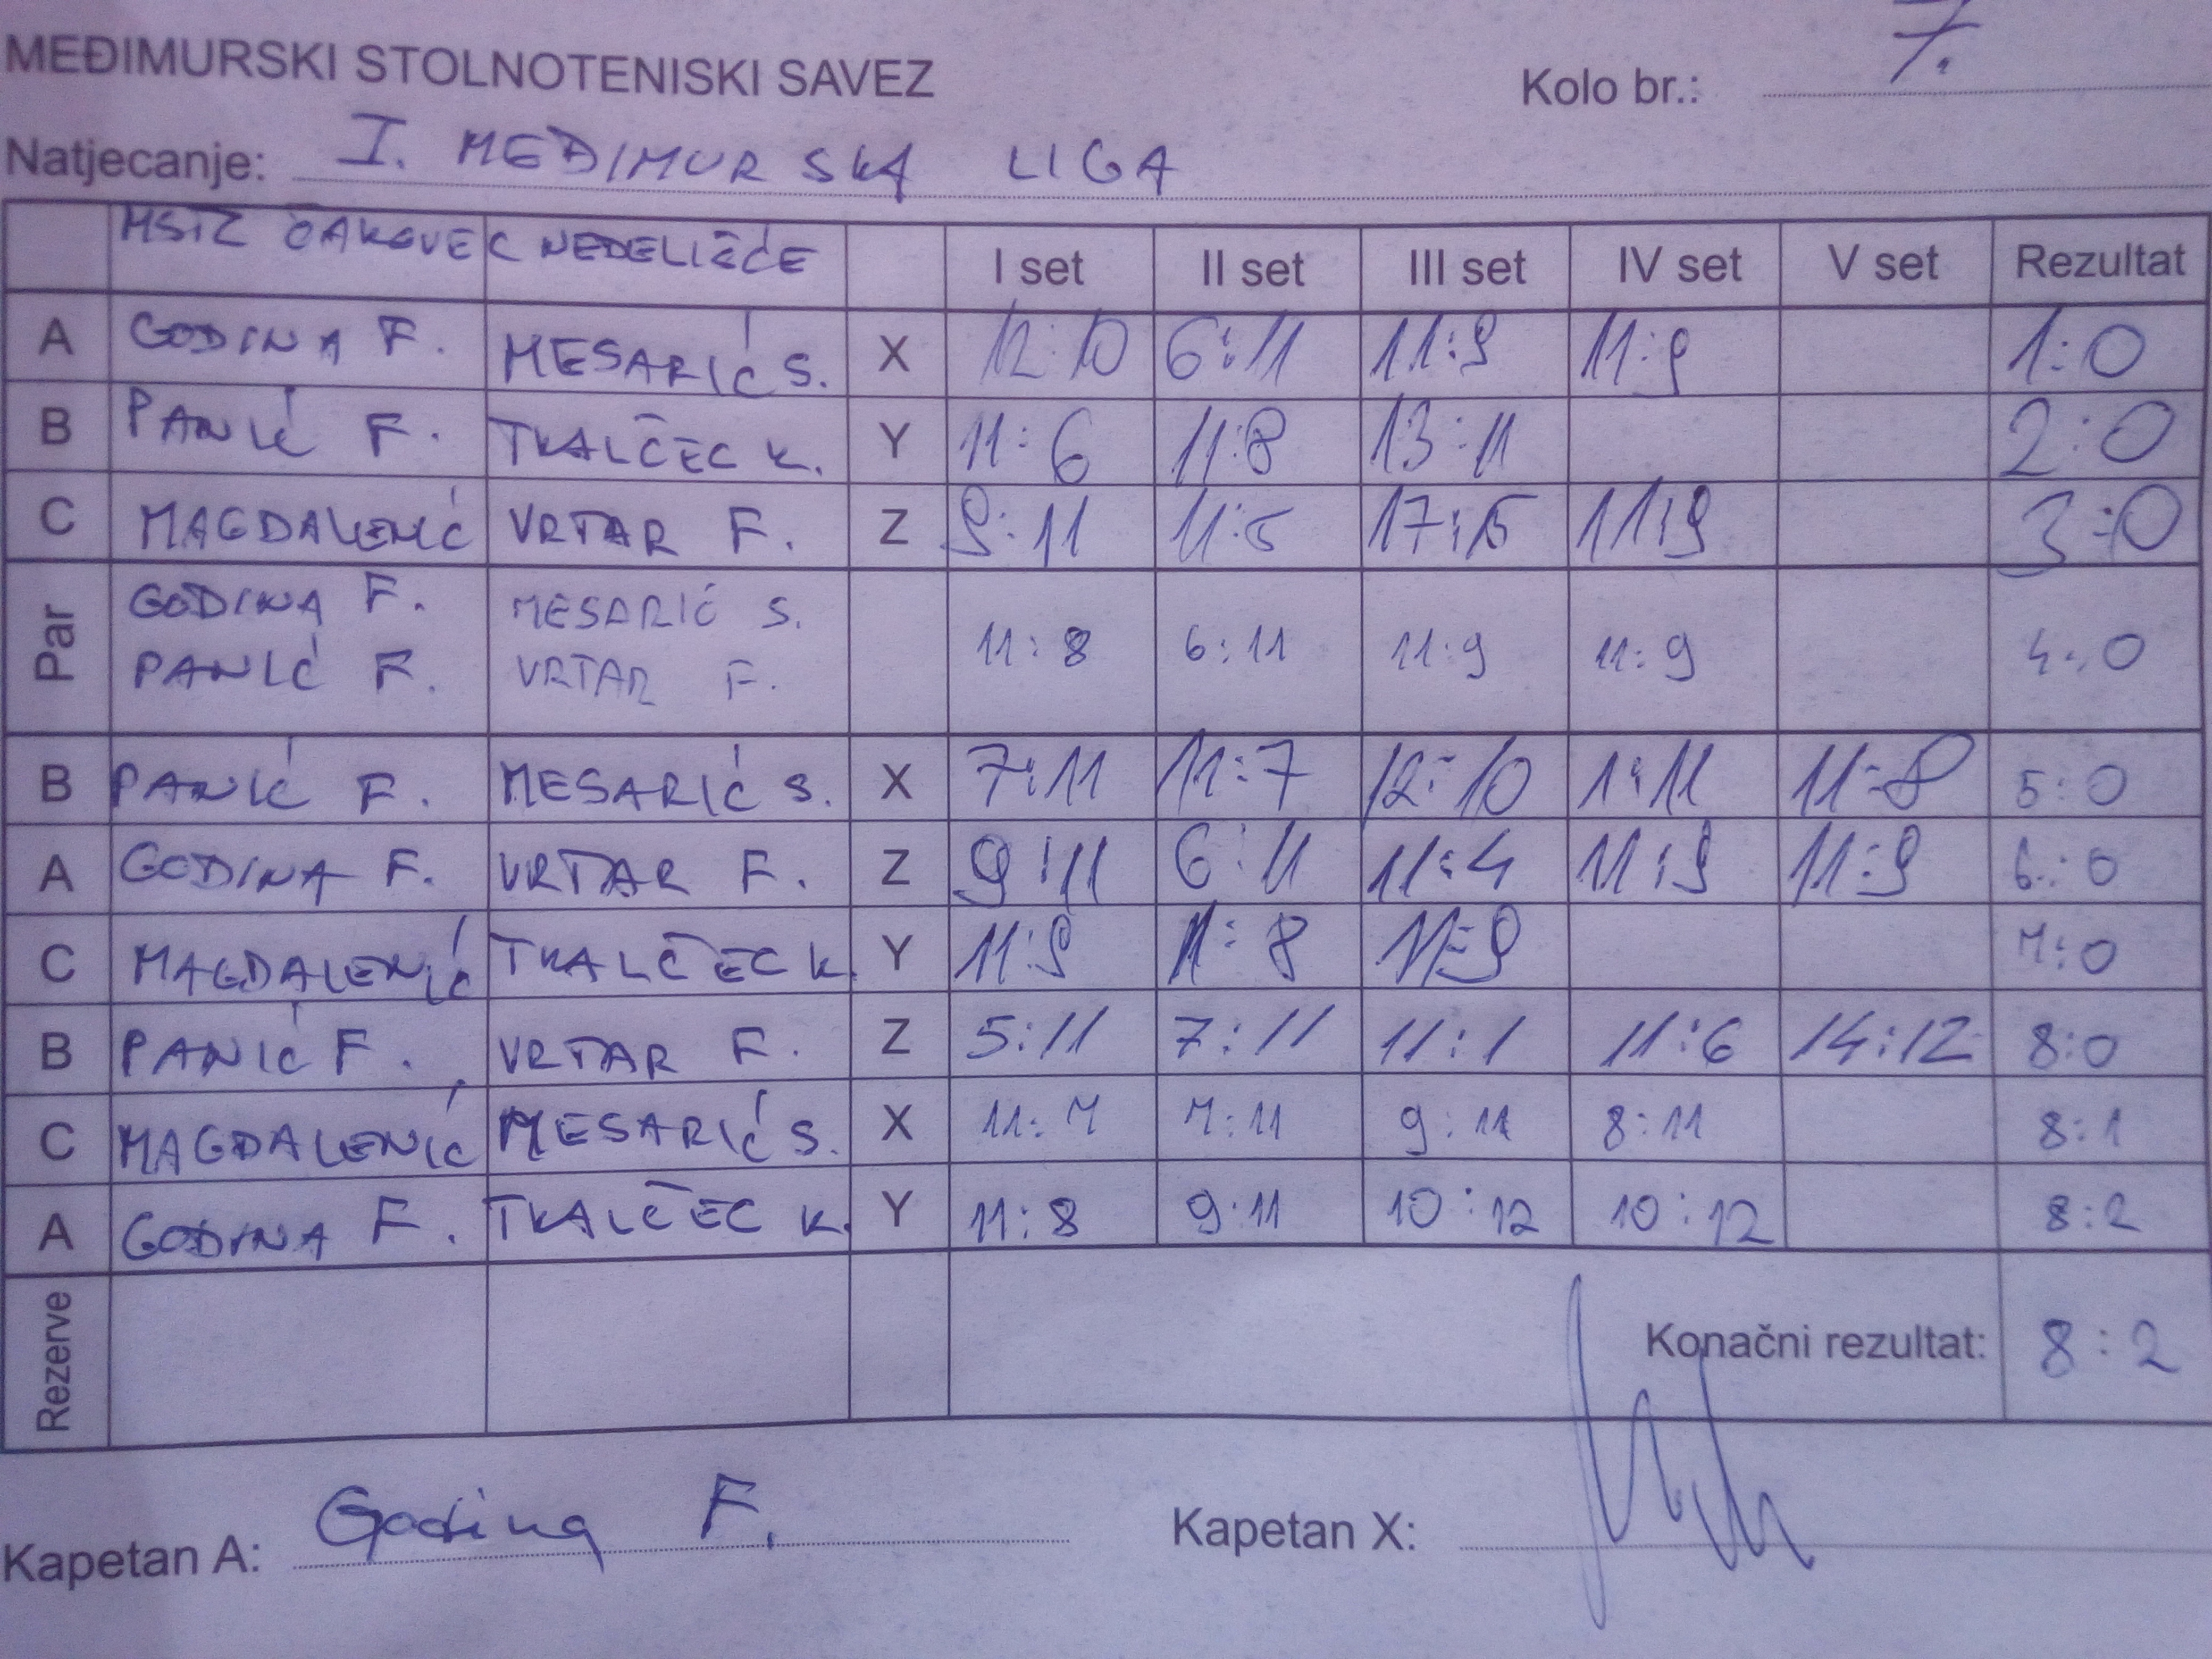 MEĐIMURSKI STOLNOTENISKI SAVEZ Kolo br.: 7.
Natjecanje: I. MEĐIMURSKA LIGA
MSTZ ČAKOVEC NEDELIŠĆE I set II set III set IV set V set Rezultat
A GODINA F. MESARIĆ S. X 12:10 6:11 11:9 11:9 1:0
B PANIĆ F. TKALČEC K. Y 11:6 11:8 13:11 2:0
C MAGDALENIĆ VRTAR F. Z 9:11 11:5 17:15 11:9 3:0
Par GODINA F. MESARIĆ S. 11:8 6:11 11:9 11:9 4:0
PANIĆ F. VRTAR F.
B PANIĆ F. MESARIĆ S. X 7:11 11:7 12:10 1:11 11:8 5:0
A GODINA F. VRTAR F. Z 9:11 6:11 11:4 11:9 11:9 6:0
C MAGDALENIĆ TKALČEC K. Y 11:9 11:8 11:9 7:0
B PANIĆ F. VRTAR F. Z 5:11 7:11 11:1 11:6 14:12 8:0
C MAGDALENIĆ MESARIĆ S. X 11:7 7:11 9:11 8:11 8:1
A GODINA F. TKALČEC K. Y 11:8 9:11 10:12 10:12 8:2
Rezerve Konačni rezultat: 8:2
Kapetan A: Godina F. Kapetan X: